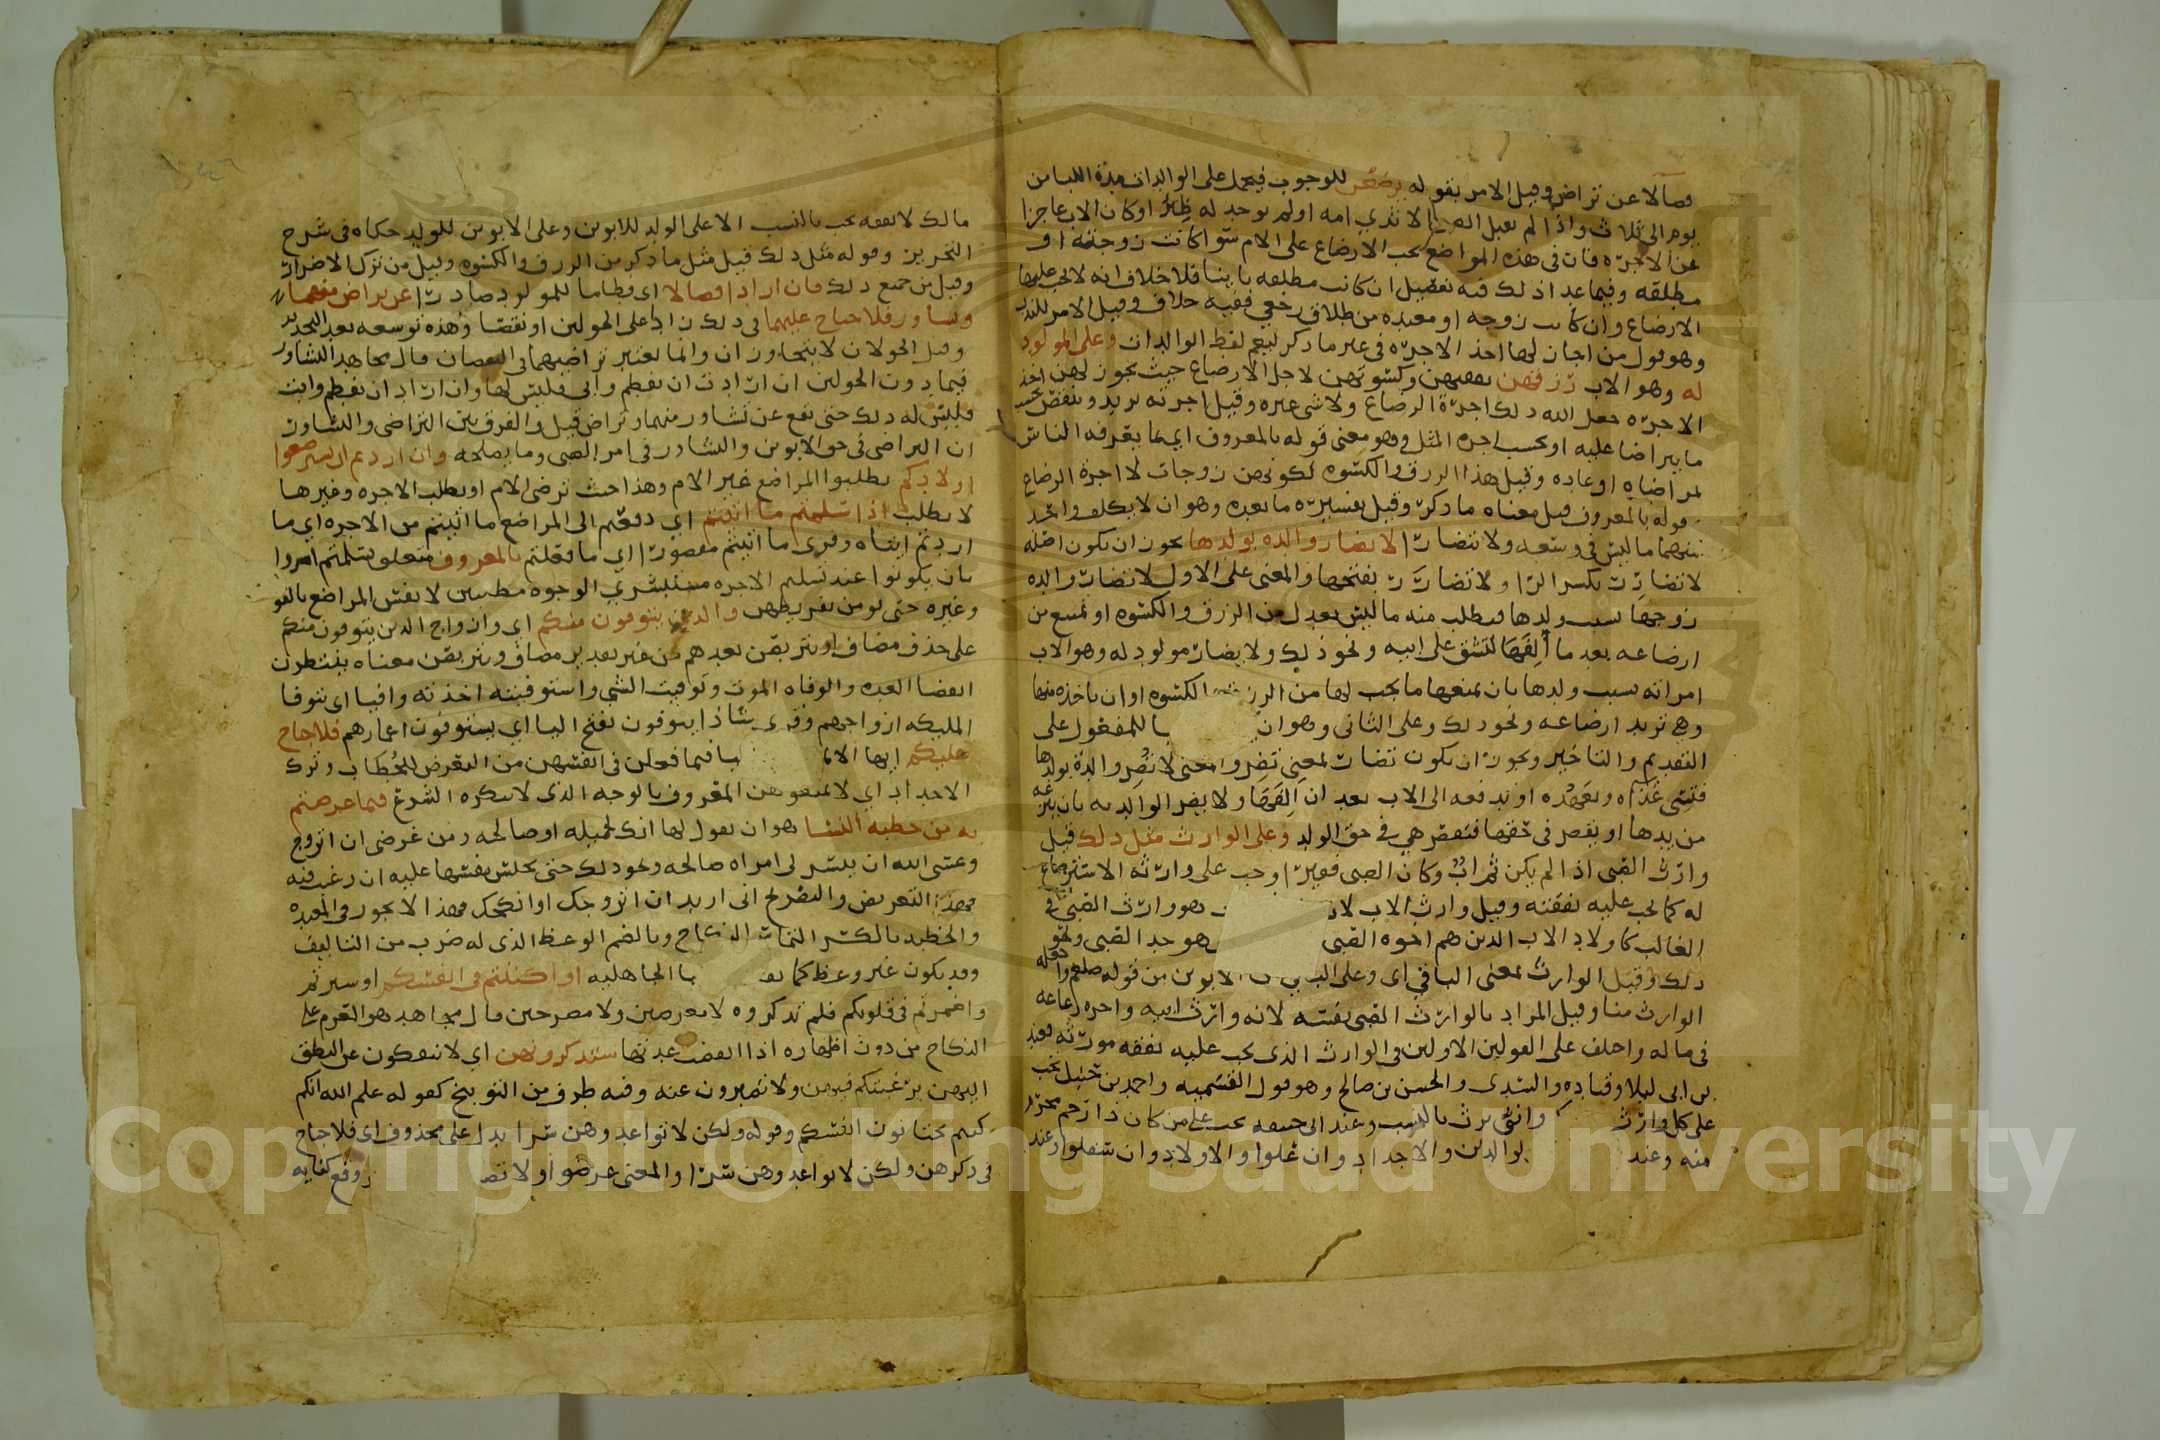 فصالا عن تراض وقيل الامر بقوله يرضعن للوجوب فيحمل على الوالدات مدة اللبا من
يوم الى ثلاث واذا لم يقبل الصبي الا ثدي امه او لم يوجد له ظئر او كان الاب عاجزا
عن الاجرة فان في هذه المواضع يجب الارضاع على الام سوا كانت زوجته او
مطلقه وفيما عدا ذلك فيه تفصيل ان كانت مطلقه باينا فلا خلاف انه لا يجب عليها
الارضاع وان كانت زوجه او معتده من طلاق رجعي ففيه خلاف وقيل الامر للندب
وهو قول من اجاز لها اخذ الاجرة في غير ما ذكر ليعم لفظ الوالدات وعلى المولود
له وهو الاب رزقهن نفقتهن وكسوتهن لاجل الارضاع حيث يجوز لهن اخذ
الاجره جعل الله ذلك اجرة الرضاع ولا شي غيره وقيل اجرته يزيد وينقص بحسب
ما يتراضا عليه او بحسب اجره المثل وهو معنى قوله بالمعروف اي بما يعرفه الناس
لمراضاه او عاده وقيل هذا الرزق والكسوه لكونهن زوجات لا اجرة الرضاع
قوله بالمعروف قيل معناه ما ذكر وقيل تفسيره ما بعده وهو ان لا يكلف واحد
منهما ما ليس في وسعه ولا يتضارا لا تضار والده بولدها يجوز ان يكون اصله
لا تضارر بكسر الرا ولا تضارر بفتحها والمعنى على الاول لا تضار والده
زوجها بسبب ولدها فتطلب منه ما ليس بعدل من الرزق والكسوه او تمتنع من
ارضاعه بعد ما ألفها لتشق على ابيه ونحو ذلك ولا يضار مولود له وهو الاب
امراته بسبب ولدها بان يمنعها ما يجب لها من الرزق الكسوه او ان ياخذه منها
وهي تريد ارضاعه ونحو ذلك وعلى الثاني وهو ان با للمفعول على
التقديم والتاخير ويجوز ان يكون تضار بمعنى تضر والمعنى لا تضر والدة بولدها
فتسي غذاه وتعهده او تدفعه الى الاب بعد ان الفها ولا يضر الوالد به بان ينزعه
من يدها او يقصر في حقها فتقصر هي في حق الولد وعلى الوارث مثل ذلك قيل
وارث الصبي اذا لم يكن ثم اب وكان الصبي فقيرا وجب على وارثه الاسترضاع
له كما يجب عليه نفقته وقيل وارث الاب لا هو وارث الصبي في
الغالب كاولاد الاب الذين هم اخوه الصبي هو جد الصبي ونحو
ذلك وقيل الوارث بمعنى الباقي اي وعلى الباقي الابوين من قوله صلعم واجعله
الوارث منا وقيل المراد بالوارث الصبي نفسه لانه وارث ابيه واجره رضاعه
في ماله واختلف على القولين الاولين في الوارث الذي يجب عليه نفقه مورثه فعند
بن ابي ليلا وقتاده والسدي والحسن بن صالح وهو قول القسميه واحمد بن حنبل يجب
على كل وارث وانثى يرث بالنسب وعند ابي حنيفه يجب على من كان ذا رحم محرم
منه وعند لوالدين والاجداد وان علوا والاولاد وان سفلوا وعند
مالك لا نفقه تجب بالنسب الا على الولد للابوين وعلى الابوين للولد حكاه في شرح
التحرير وقوله مثل ذلك قيل مثل ما ذكر من الرزق والكسوه وقيل من ترك الاضرار
وقيل من جميع ذلك فان ارادا فصالا اي فطاما للمولود صادرا عن تراض منهما
وتشاور فلا جناح عليهما في ذلك زادا على الحولين او نقصا وهذه توسعه بعد التحديد
وقيل الحولان لا يتجاوزان وانما يعتبر تراضيهما في النقصان قال مجاهد التشاور
فيما دون الحولين ان ارادت ان تفطم وابى فليس لها وان اراد ان يفطم وابت
فليس له ذلك حتى يقع عن تشاور منهما وتراض قيل والفرق بين التراضي والتشاور
ان التراضي في حق الابوين والتشاور في امر الصبي وما يصلحه وان اردتم ان تسترضعوا
اولادكم تطلبوا المراضع غير الام وهذا حيث ترضى الام او تطلب الاجره وغيرها
لا تطلب اذا سلمتم ما اتيتم اي دفعتم الى المراضع ما اتيتم من الاجره اي ما
اردتم ايتاه وقرى ما اتيتم مقصورا اي ما فعلتم بالمعروف متعلق بسلمتم امروا
بان يكونوا عند تسليم الاجره مستبشري الوجوه مطيبين لانفس المراضع بالقول
وغيره حتى يومن تفريطهن والذين يتوفون منكم اي وازواج الذين يتوفون منكم
على حذف مضاف او يتربصن بعدهم من غير تقدير مضاف ويتربصن معناه ينتظرن
انقضا العده والوفاه الموت وتوفيت الشي واستوفيته اخذته وافيا اي تتوفا
المليكه ازواجهم وقرى شاذا يتوفون بفتح اليا اي يستوفون اعمارهم فلا جناح
عليكم ايها الا فيما فعلن في انفسهن من التعرض للخطاب وترك
الاحداد اي لا تمنعوهن المعروف بالوجه الذي لا ينكره الشرع فيما عرضتم
به من خطبه النسا هو ان يقول لها انك لجميله او صالحه ومن غرضي ان اتزوج
وعسى الله ان ييسر لي امراه صالحه ونحو ذلك حتى تحبس نفسها عليه ان رغبت فيه
فهذا التعريض والتصريح اني اريد ان اتزوجك او انكحك فهذا لا يجوز في العده
والخطبه بالكسر التماس النكاح وبالضم الوعظ الذي له ضرب من التاليف
وقد يكون غير وعظ كما با الجاهليه او اكننتم في انفسكم او سترتم
واضمرتم في قلوبكم فلم تذكروه لا معرضين ولا مصرحين قال مجاهد هو العزم على
النكاح من دون اظهاره اذا انقضت عدتها ستذكرونهن اي لا تنفكون عن النطق
اليهن برغبتكم فيهن ولا تصبرون عنه وفيه طرف من التوبيخ كقوله علم الله انكم
كنتم تختانون انفسكم وقوله ولكن لا تواعدوهن سرا يدل على محذوف اي فلا جناح
في ذكرهن ولكن لا تواعدوهن سرا والمعنى عرضوا ولا وقع كنايه
Copyright © King Saud University